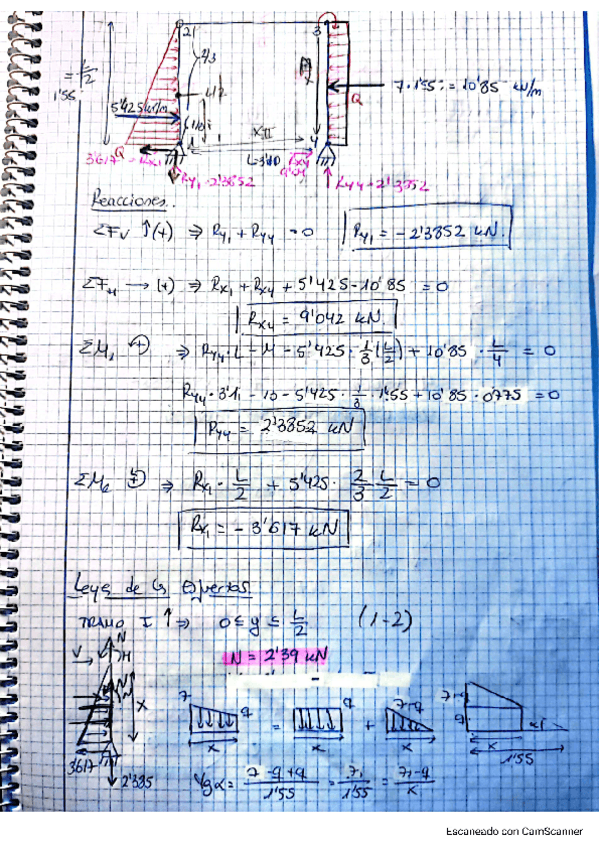 2 3
= L/2
1'55
2/3
L/2
5'425 kN/m
7·1'55 = 10'85 kN/m
Q
XII
1 4
3'617 = Rx1
L=3'10
Rx4
9'042
Q
Ry1=2'3852
Ry4=2'3852
Reacciones.
ΣFv ↑(+) ⇒ Ry1 + Ry4 = 0 Ry1 = -2'3852 kN.
ΣFH → (+) ⇒ Rx1 + Rx4 + 5'425 - 10'85 = 0
Rx4 = 9'042 kN
ΣM1 (+) ⇒ Ry4·L - M - 5'425·1/3(L/2) + 10'85·L/4 = 0
Ry4·3'1 - 10 - 5'425·1/3·1'55 + 10'85·0'775 = 0
Ry4 = 2'3852 kN
ΣM2 (+) ⇒ Rx1·L/2 + 5'425·2/3 L/2 = 0
Rx1 = -3'617 kN
Leyes de los Esfuerzos
TRAMO I ↑ ⇒ 0 ≤ y ≤ L/2 (1-2)
N = 2'39 kN
V N M
x
3617
2'385
7 q = q + 7-q
x x x
7-q
q
x
1'55
tg α = (7-q+q)/1'55 = 7/1'55 = (7-q)/x
Escaneado con CamScanner